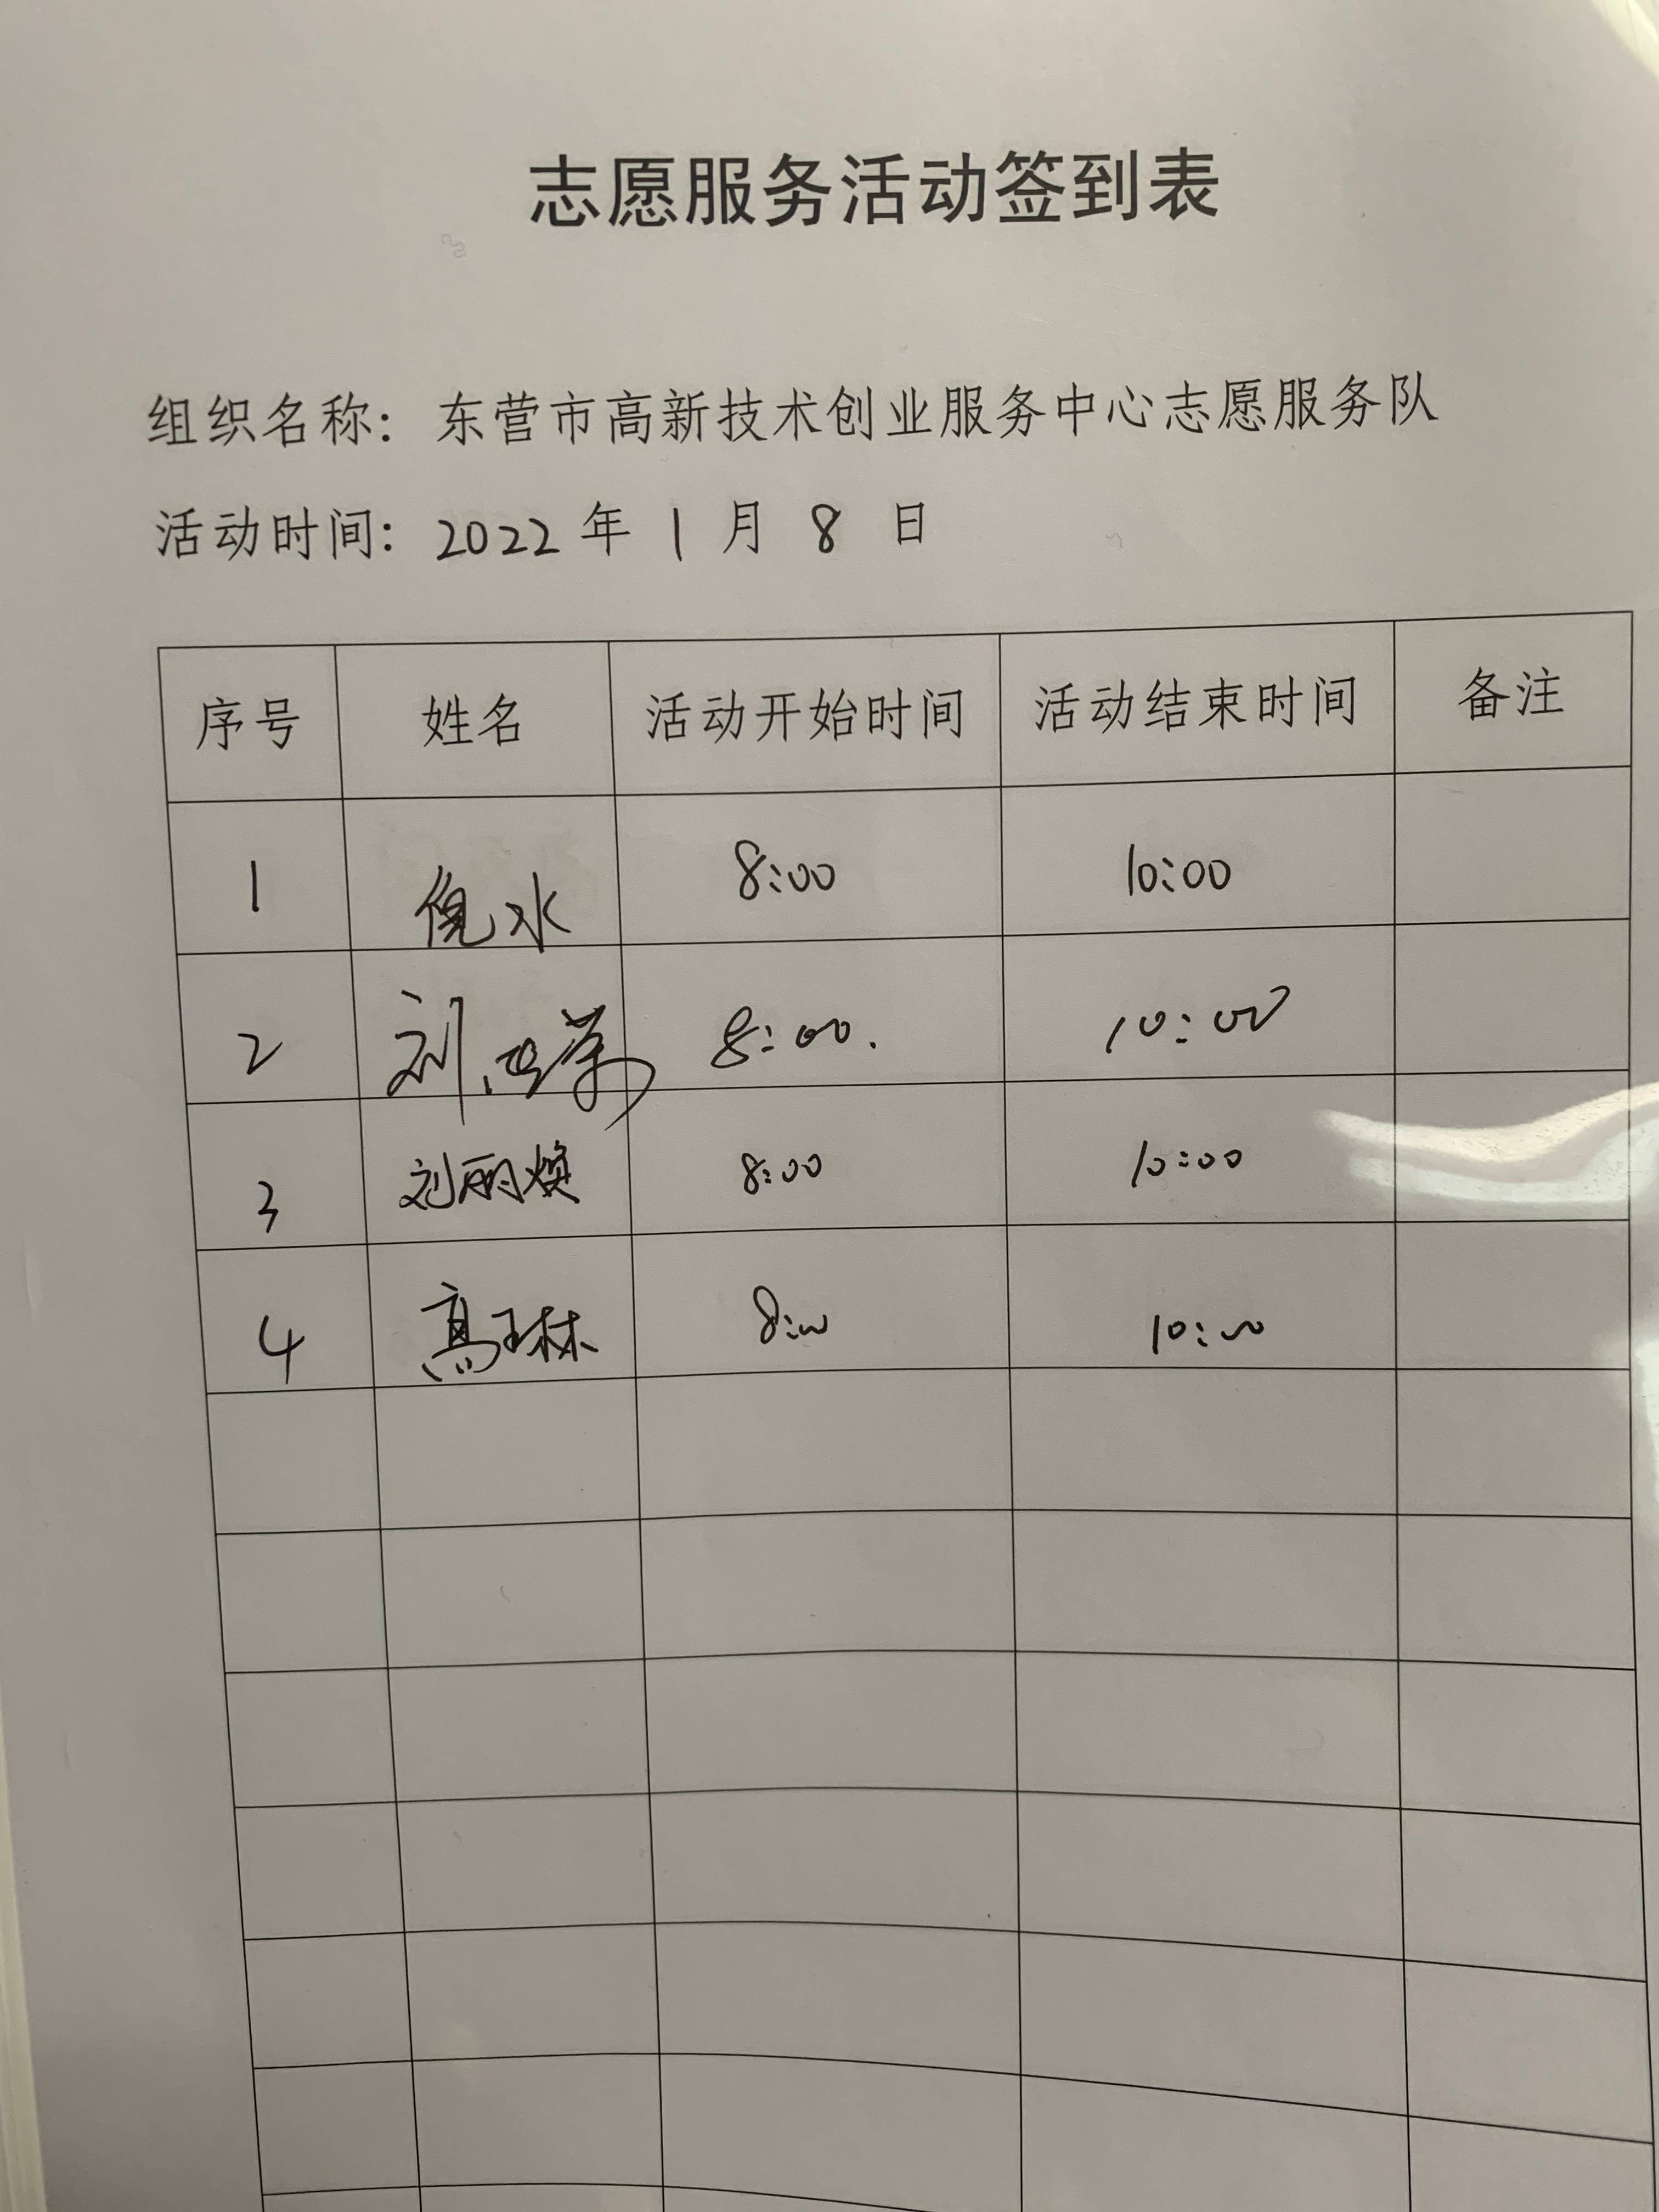 志愿服务活动签到表
组织名称：东营市高新技术创业服务中心志愿服务队
活动时间：2022 年 1 月 8 日
序号 姓名 活动开始时间 活动结束时间 备注
1 倪水 8:00 10:00
2 刘 8:00. 10:00
3 刘丽焕 8:00 10:00
4 高琳 8:00 10:00